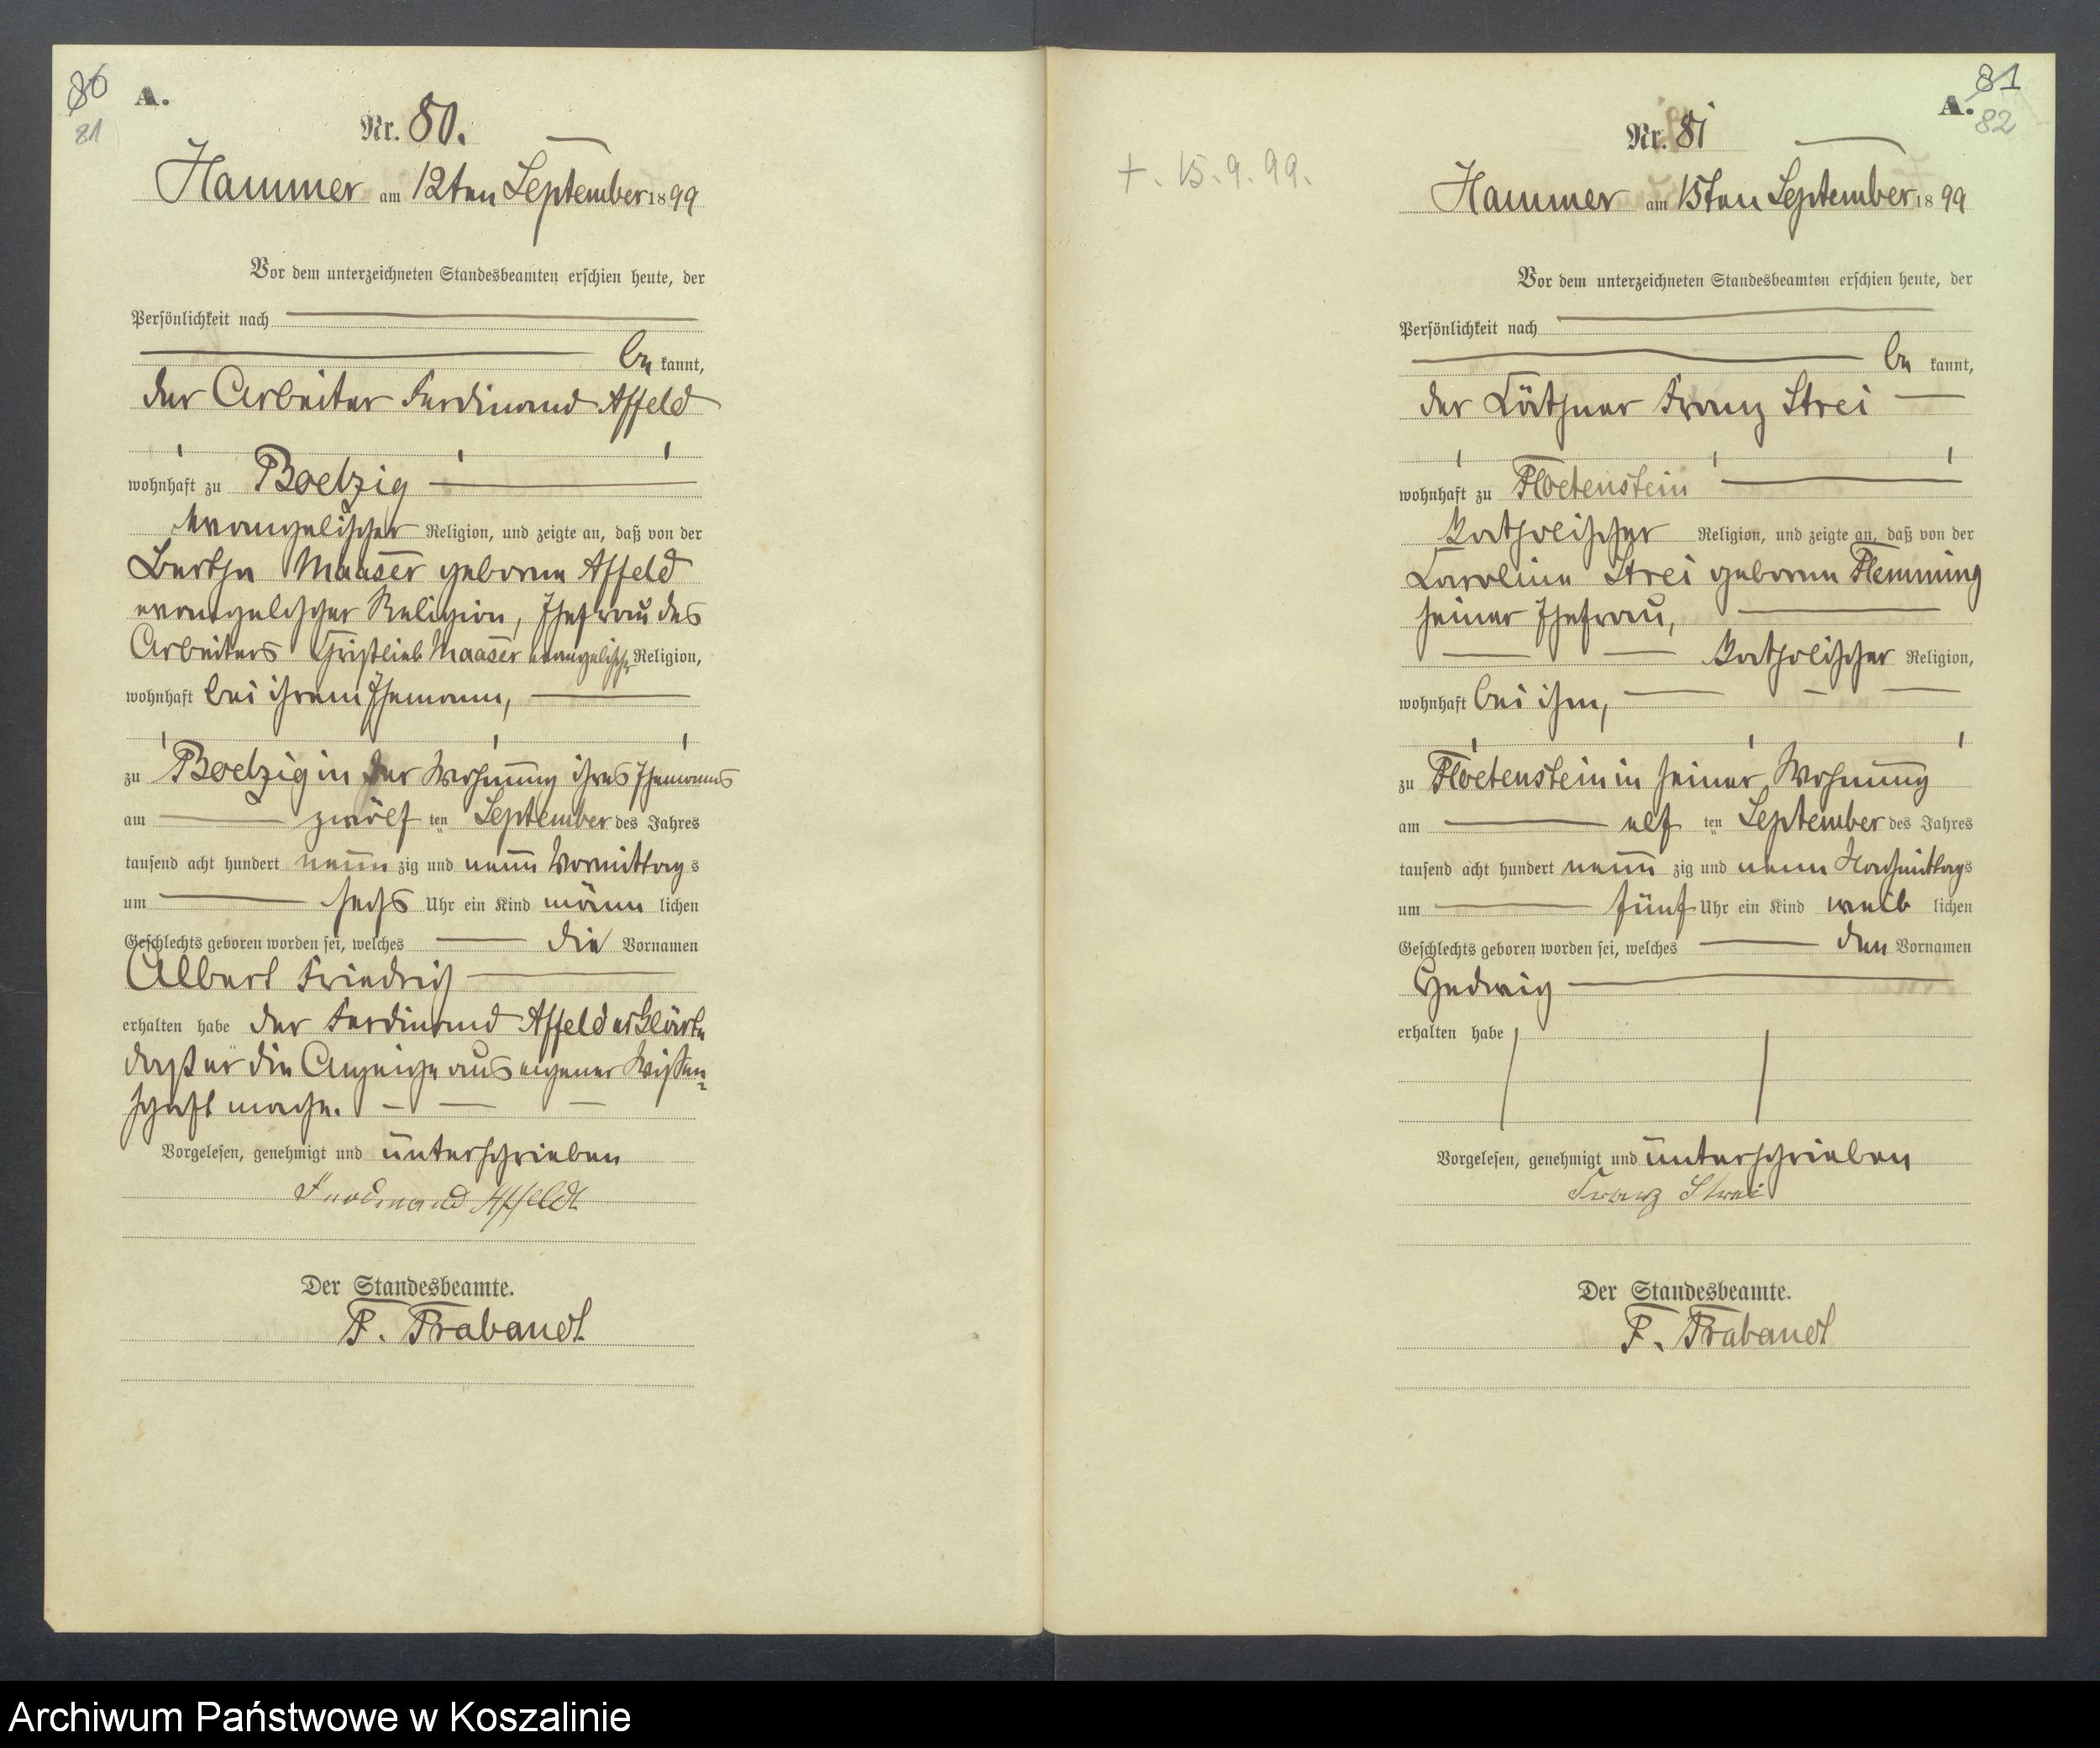 80
81
A.
Nr. 80.
Hammer am 12ten September 1899
Vor dem unterzeichneten Standesbeamten erschien heute, der
Persönlichkeit nach
be kannt,
der Arbeiter Ferdinand Affeld
wohnhaft zu Boelzig
evangelischer Religion, und zeigte an, daß von der
Bertha Maaser geborne Affeld
evangelischer Religion, Ehefrau des
Arbeiters Christlieb Maaser evangelischer Religion,
wohnhaft bei ihrem Ehemann,
zu Boelzig in der Wohnung ihres Ehemanns
am zwölf ten September des Jahres
tausend acht hundert neun zig und neun Vormittag s
um sechs Uhr ein Kind männ lichen
Geschlechts geboren worden sei, welches die Vornamen
Albert Friedrich
erhalten habe der Ferdinand Affeld erklärte
daß er die Anzeige aus eigener Wissen-
schaft mache.
Vorgelesen, genehmigt und unterschrieben
Ferdinand Affeldt
Der Standesbeamte.
F. Trabandt
81
A.
82
+. 15.9.99.
Nr. 81
Hammer am 15ten September 1899
Vor dem unterzeichneten Standesbeamten erschien heute, der
Persönlichkeit nach
be kannt,
der Käthner Franz Strei
wohnhaft zu Floetenstein
katholischer Religion, und zeigte an, daß von der
Caroline Strei geborne Flemming
seiner Ehefrau,
katholischer Religion,
wohnhaft bei ihm,
zu Floetenstein in seiner Wohnung
am elf ten September des Jahres
tausend acht hundert neun zig und neun Nachmittags
um fünf Uhr ein Kind weib lichen
Geschlechts geboren worden sei, welches den Vornamen
Hedwig
erhalten habe
Vorgelesen, genehmigt und unterschrieben
Franz Strei
Der Standesbeamte.
F. Trabandt
Archiwum Państwowe w Koszalinie